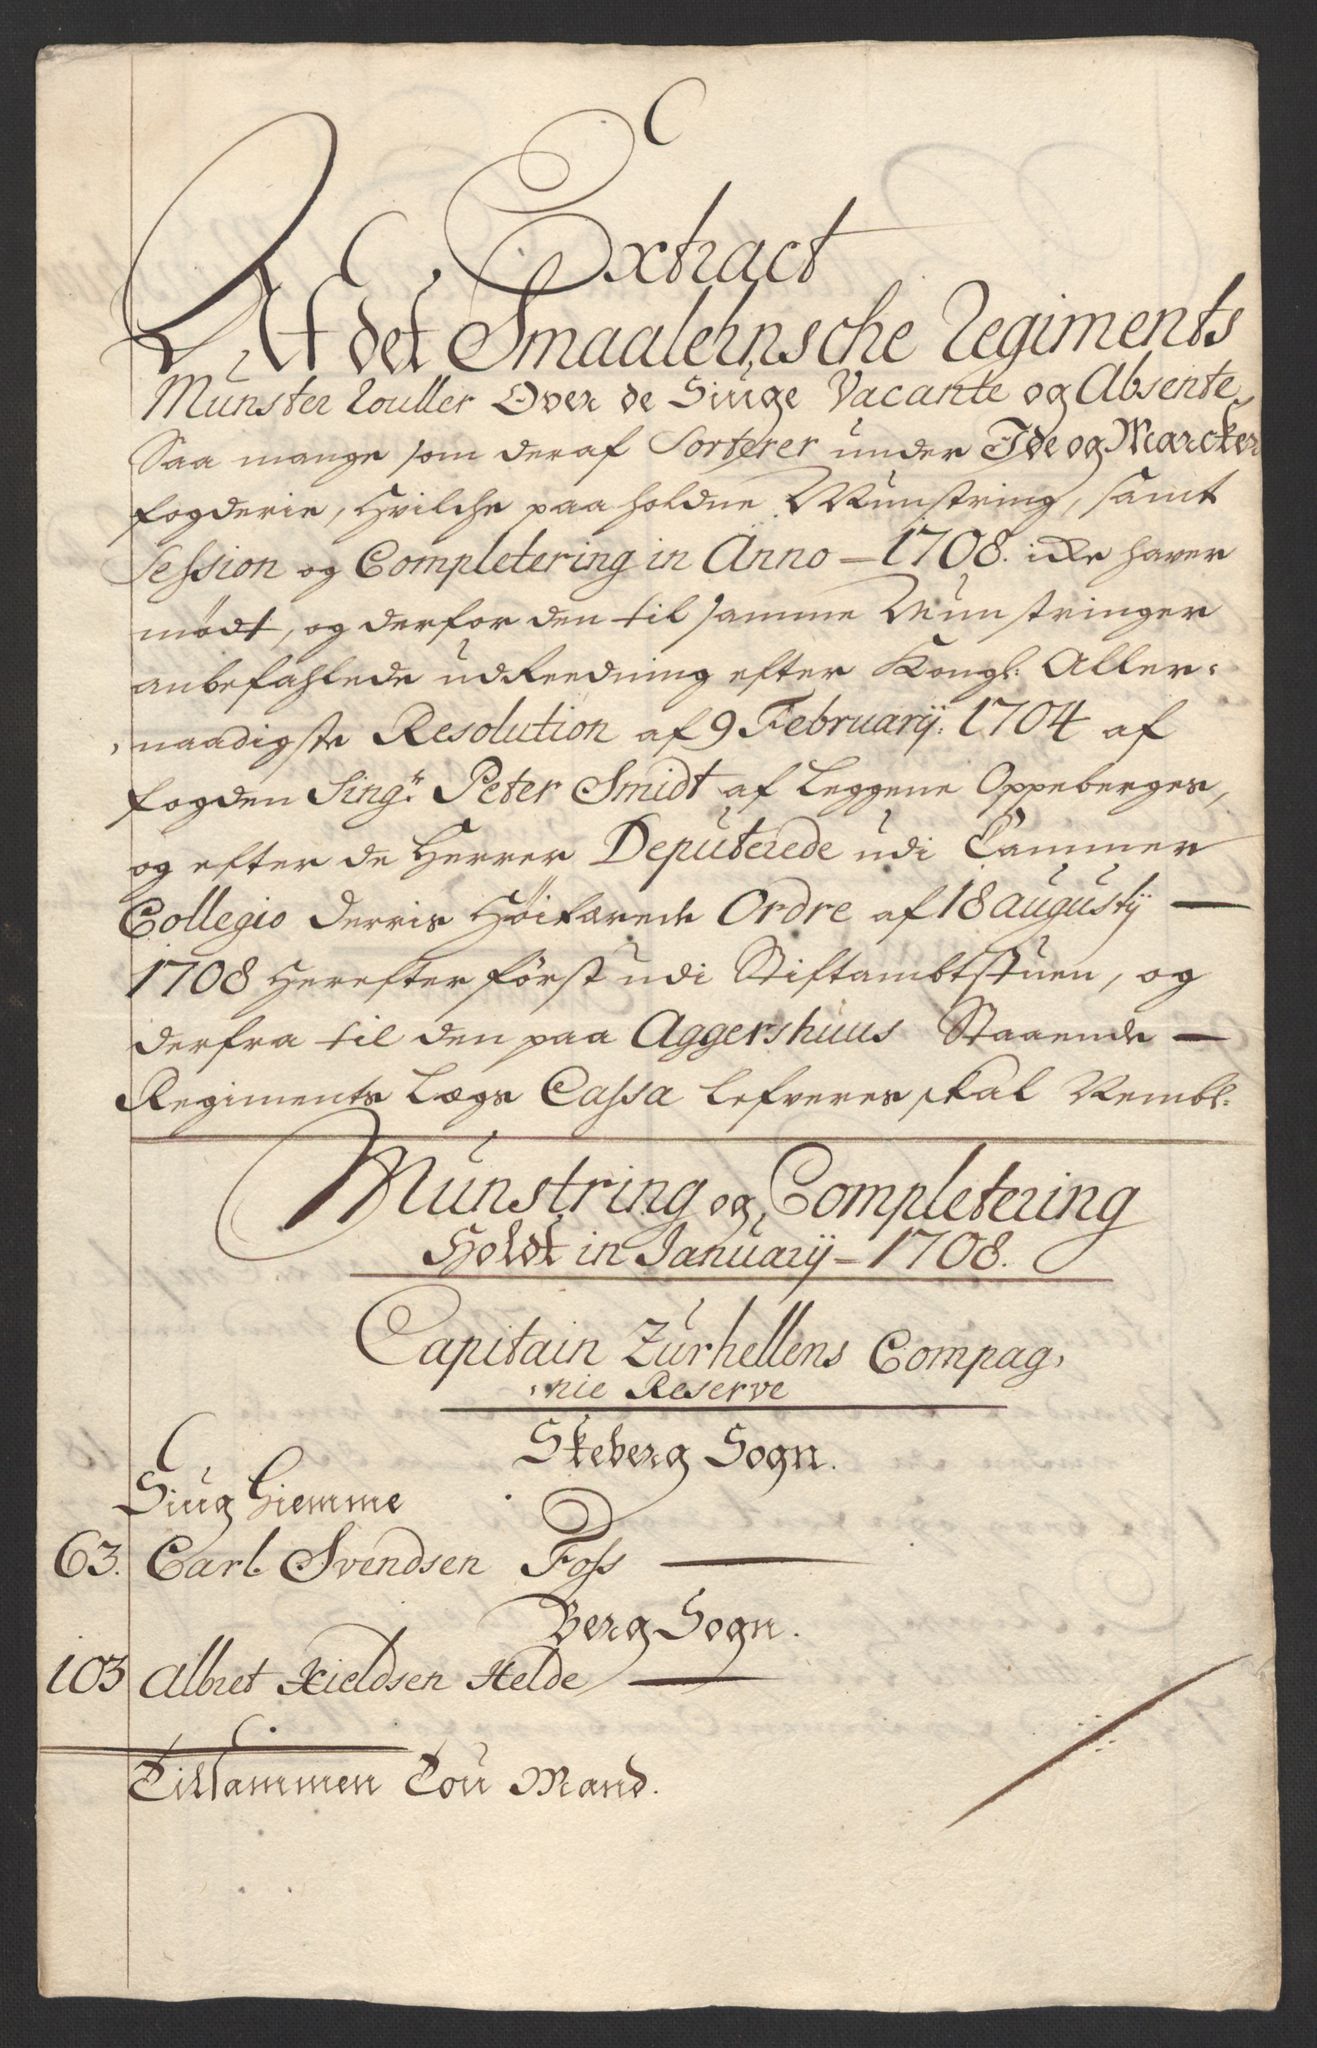 Extract
Af det Smaalehnsche Regiments
Munster Roller Over de Siuge Vacante og Absente,
Saa mange som deraf Sorterer under Ide og Marcker
fogderie, Hvilche paa holdne Munstring, samt
Session og Completering in Anno - 1708. icke haver
mødt, og derfor den til samme Munstringer
anbefahlede udReedning efter Kongl: Aller=
naadigste Resolution af 9 Februarij: 1704 af
fogden Sing.r Peter Smidt af Leggene Oppeberges,
og efter de Herrer Deputerede udi Cammer
Collegio derris Høib: Ordre af 18 augustij —
1708 Herefter først udi Stiftambtstuen, og
derfra til den paa Aggershuus Staaende —
Regiments Lægs Cassa Lefveres skal Nembl:
Munstring og Completering
Holdt in Januarij - 1708.
Capitain Zurhellens Compag,
,nie Reserve
Skeberg Sogn.
Siug Hiemme
63. Carl Svendsen Foss —
Berg Sogn.
103 Albret Kieldsen Helde —
Tilsammen Tou Mand.